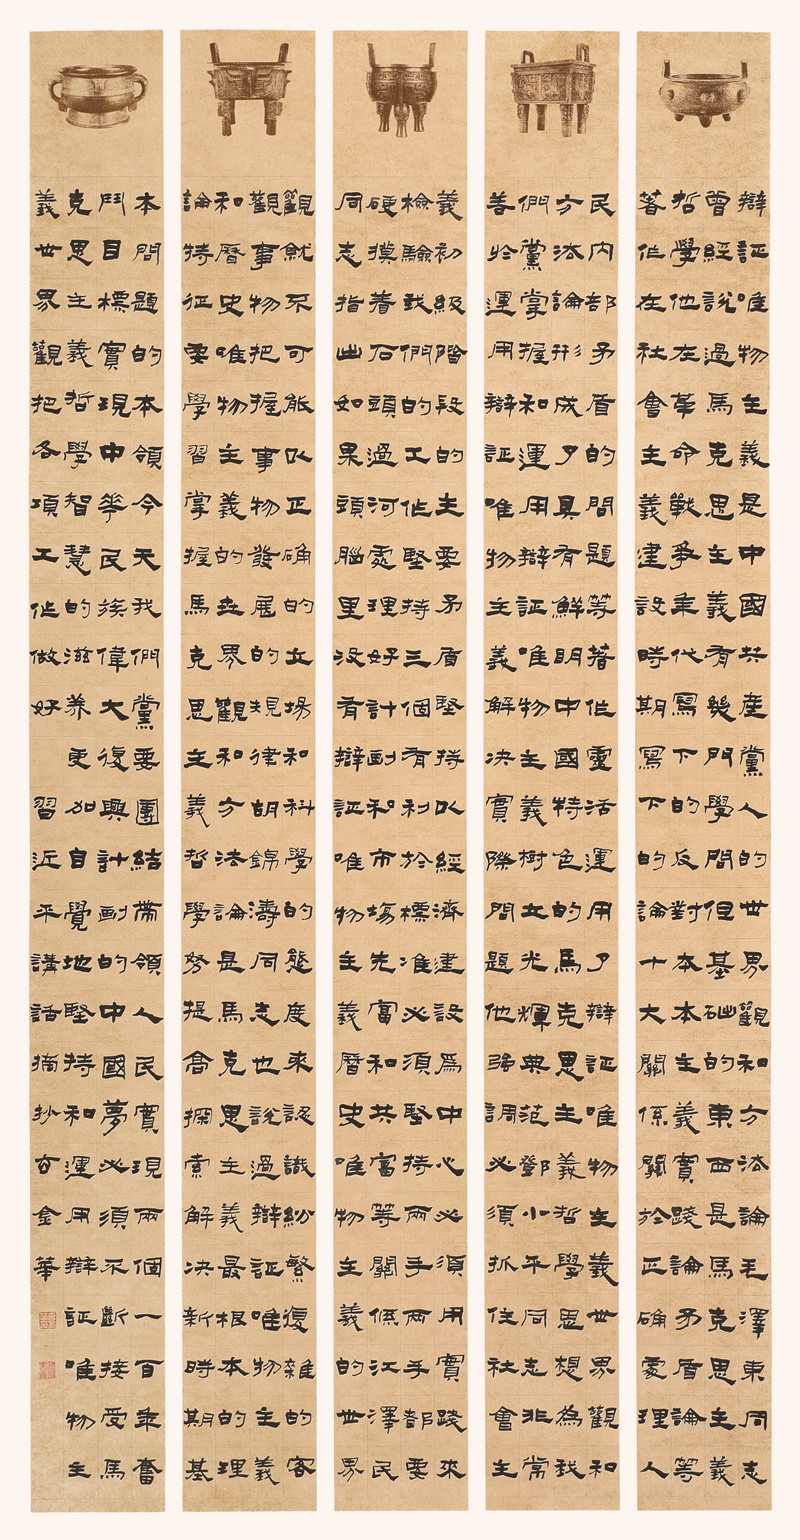 辯証唯物主義是中國共產黨人的世界觀和方法論毛澤東同志
曾經說過馬克思主義有幾門學問但基础的東西是馬克思主義
哲學他在革命戰爭年代寫下的反對本本主義實踐論矛盾論等
著作在社會主義建設時期寫下的論十大關係關於正确處理人
民內部矛盾的問題等著作靈活運用了辯証唯物主義世界觀和
方法論形成了具有鮮明中國特色的馬克思主義哲學思想為我
們黨掌握和運用辯証唯物主義樹立光輝典范鄧小平同志非常
善於運用辯証唯物主義解决實際問題他強調必須抓住社會主
義初級階段的主要矛盾堅持以經濟建設爲中心必須用實踐來
檢驗我們的工作堅持三個有利於標准必須堅持兩手兩手都要
硬摸着石頭過河處理好計劃和市場先富和共富等關係江澤民
同志指出如果頭腦里没有辯証唯物主義曆史唯物主義的世界
觀就不可能以正确的立場和科學的態度來認識紛繁復雜的客
觀事物把握事物發展的規律胡錦濤同志也說過辯証唯物主義
和曆史唯物主義的世界觀和方法論是馬克思主義最根本的理
論特征要學習掌握馬克思主義哲學努提高探索解决新時期基
本問題的本領今天我們黨要團結帶領人民實現兩個一百年奮
鬥目標實現中華民族偉大復興計劃的中國夢必須不斷接受馬
克思主義哲學智慧的滋養更加自覺地堅持和運用辯証唯物主
義世界觀把各項工作做好 習近平講話摘抄谷金華